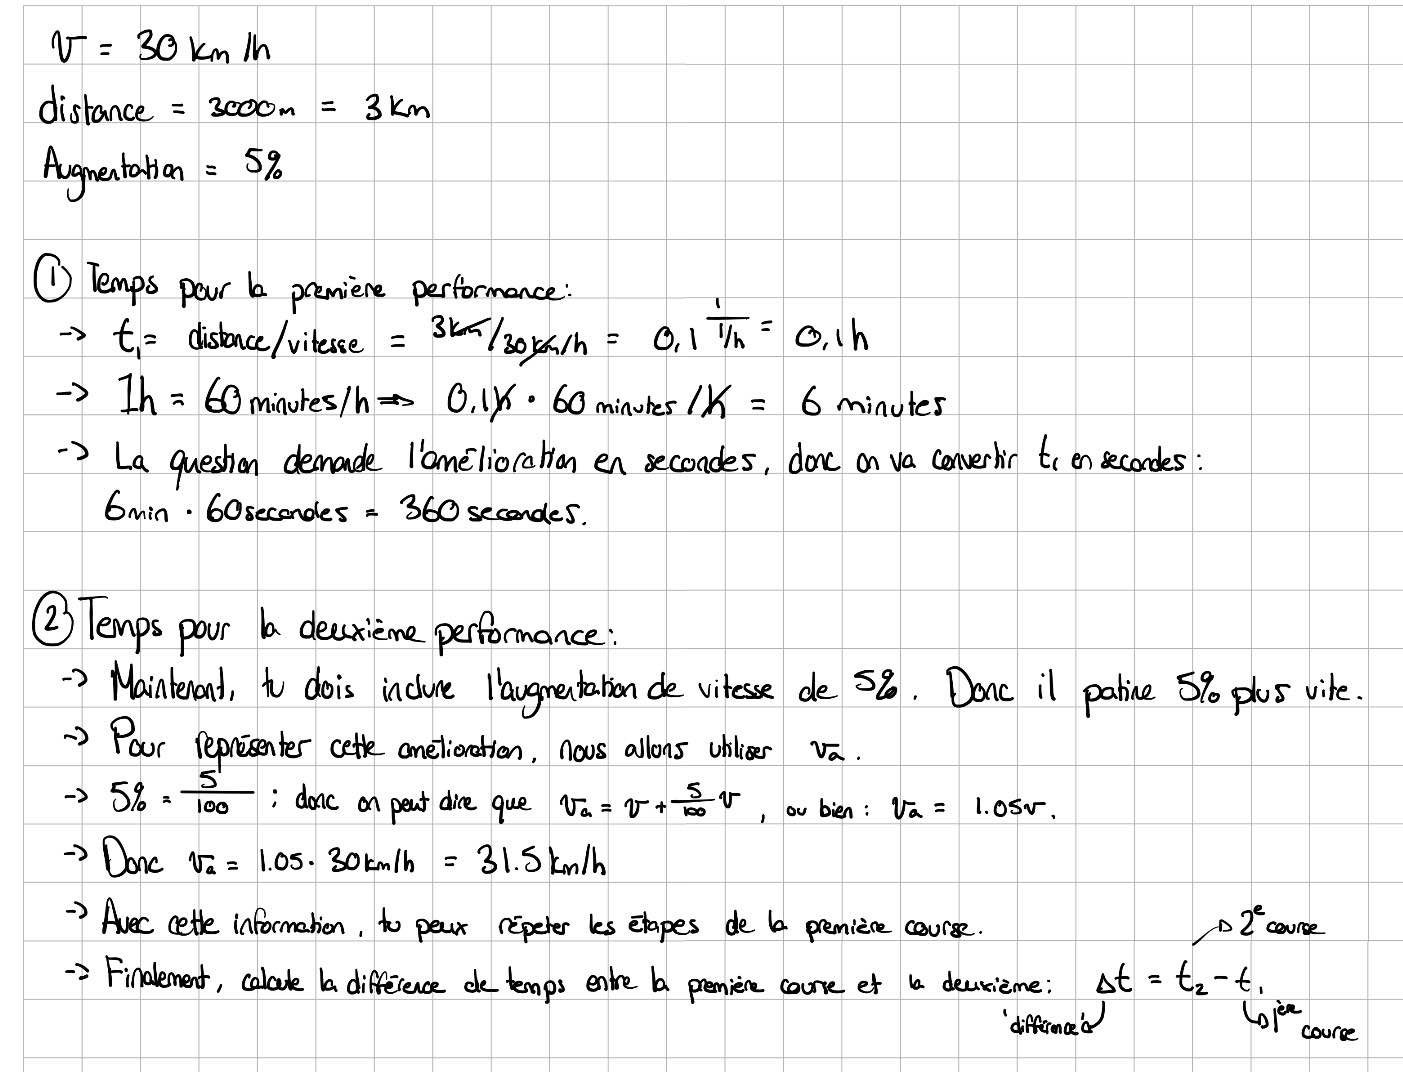 v = 30 km/h
distance = 3000m = 3 km
Augmentation = 5%
① Temps pour la première performance:
-> t₁ = distance/vitesse = 3km/30km/h = 0,1 1/1/h = 0,1h
-> 1h = 60 minutes/h => 0,1h · 60 minutes/h = 6 minutes
-> La question demande l'amélioration en secondes, donc on va convertir t₁ en secondes:
6min · 60secondes = 360 secondes.
② Temps pour la deuxième performance:
-> Maintenant, tu dois inclure l'augmentation de vitesse de 5%. Donc il patine 5% plus vite.
-> Pour représenter cette amélioration, nous allons utiliser va.
-> 5% = 5/100 ; donc on peut dire que va = v + 5/100 v, ou bien: va = 1.05v.
-> Donc va = 1.05 · 30km/h = 31.5 km/h
-> Avec cette information, tu peux répéter les étapes de la première course.
-> Finalement, calcule la différence de temps entre la première course et la deuxième: Δt = t₂ - t₁
2e course
1ère course